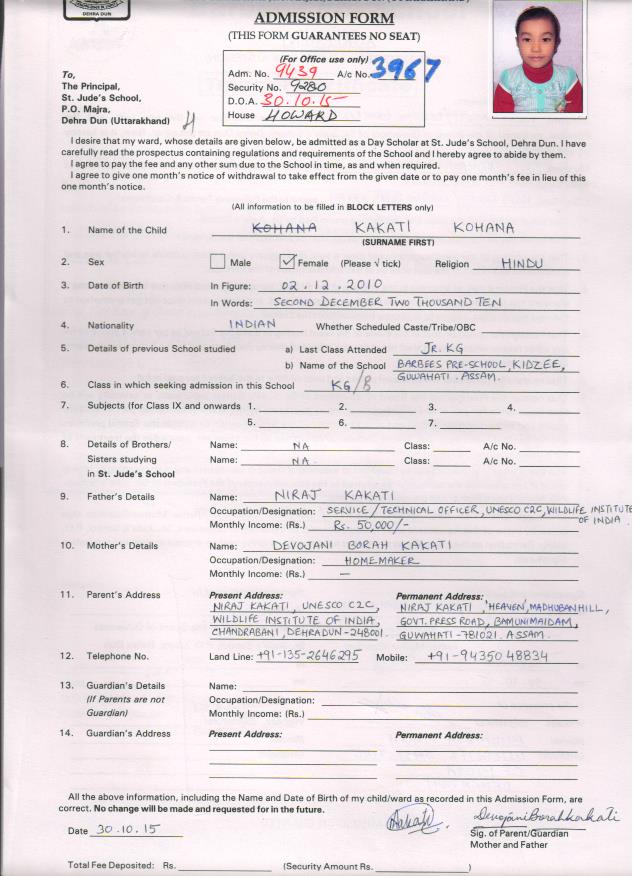 DEHRA DUN
ADMISSION FORM
(THIS FORM GUARANTEES NO SEAT)
(For Office use only)
Adm. No. 9439 A/c No. 3967
Security No. 9280
D.O.A. 30.10.15
House HOWARD
To,
The Principal,
St. Jude's School,
P.O. Majra,
Dehra Dun (Uttarakhand)
I desire that my ward, whose details are given below, be admitted as a Day Scholar at St. Jude's School, Dehra Dun. I have
carefully read the prospectus containing regulations and requirements of the School and I hereby agree to abide by them.
I agree to pay the fee and any other sum due to the School in time, as and when required.
I agree to give one month's notice of withdrawal to take effect from the given date or to pay one month's fee in lieu of this
one month's notice.
(All information to be filled in BLOCK LETTERS only)
1. Name of the Child KOHANA KAKATI KOHANA
(SURNAME FIRST)
2. Sex Male Female (Please √ tick) Religion HINDU
3. Date of Birth In Figure: 02.12.2010
In Words: SECOND DECEMBER TWO THOUSAND TEN
4. Nationality INDIAN Whether Scheduled Caste/Tribe/OBC
5. Details of previous School studied a) Last Class Attended JR. KG
b) Name of the School BARBEES PRE-SCHOOL, KIDZEE,
GUWAHATI. ASSAM.
6. Class in which seeking admission in this School KG/B
7. Subjects (for Class IX and onwards 1. 2. 3. 4.
5. 6. 7.
8. Details of Brothers/ Name: NA Class: A/c No.
Sisters studying Name: NA. Class: A/c No.
in St. Jude's School
9. Father's Details Name: NIRAJ KAKATI
Occupation/Designation: SERVICE/TECHNICAL OFFICER, UNESCO C2C, WILDLIFE INSTITUTE
OF INDIA.
Monthly Income: (Rs.) Rs. 50,000/-
10. Mother's Details Name: DEVOJANI BORAH KAKATI
Occupation/Designation: HOMEMAKER
Monthly Income: (Rs.) —
11. Parent's Address Present Address: Permanent Address:
NIRAJ KAKATI, UNESCO C2C, NIRAJ KAKATI 'HEAVEN', MADHUBAN HILL,
WILDLIFE INSTITUTE OF INDIA, GOVT. PRESS ROAD, BAMUNIMAIDAM,
CHANDRABANI, DEHRADUN-248001. GUWAHATI-781021. ASSAM.
12. Telephone No. Land Line: +91-135-2646295 Mobile: +91-94350 48834
13. Guardian's Details Name:
(If Parents are not Occupation/Designation:
Guardian) Monthly Income: (Rs.)
14. Guardian's Address Present Address: Permanent Address:
All the above information, including the Name and Date of Birth of my child/ward as recorded in this Admission Form, are
correct. No change will be made and requested for in the future.
Devojani Borah Kakati
Date 30.10.15 Sig. of Parent/Guardian
Mother and Father
Total Fee Deposited: Rs. (Security Amount Rs. )